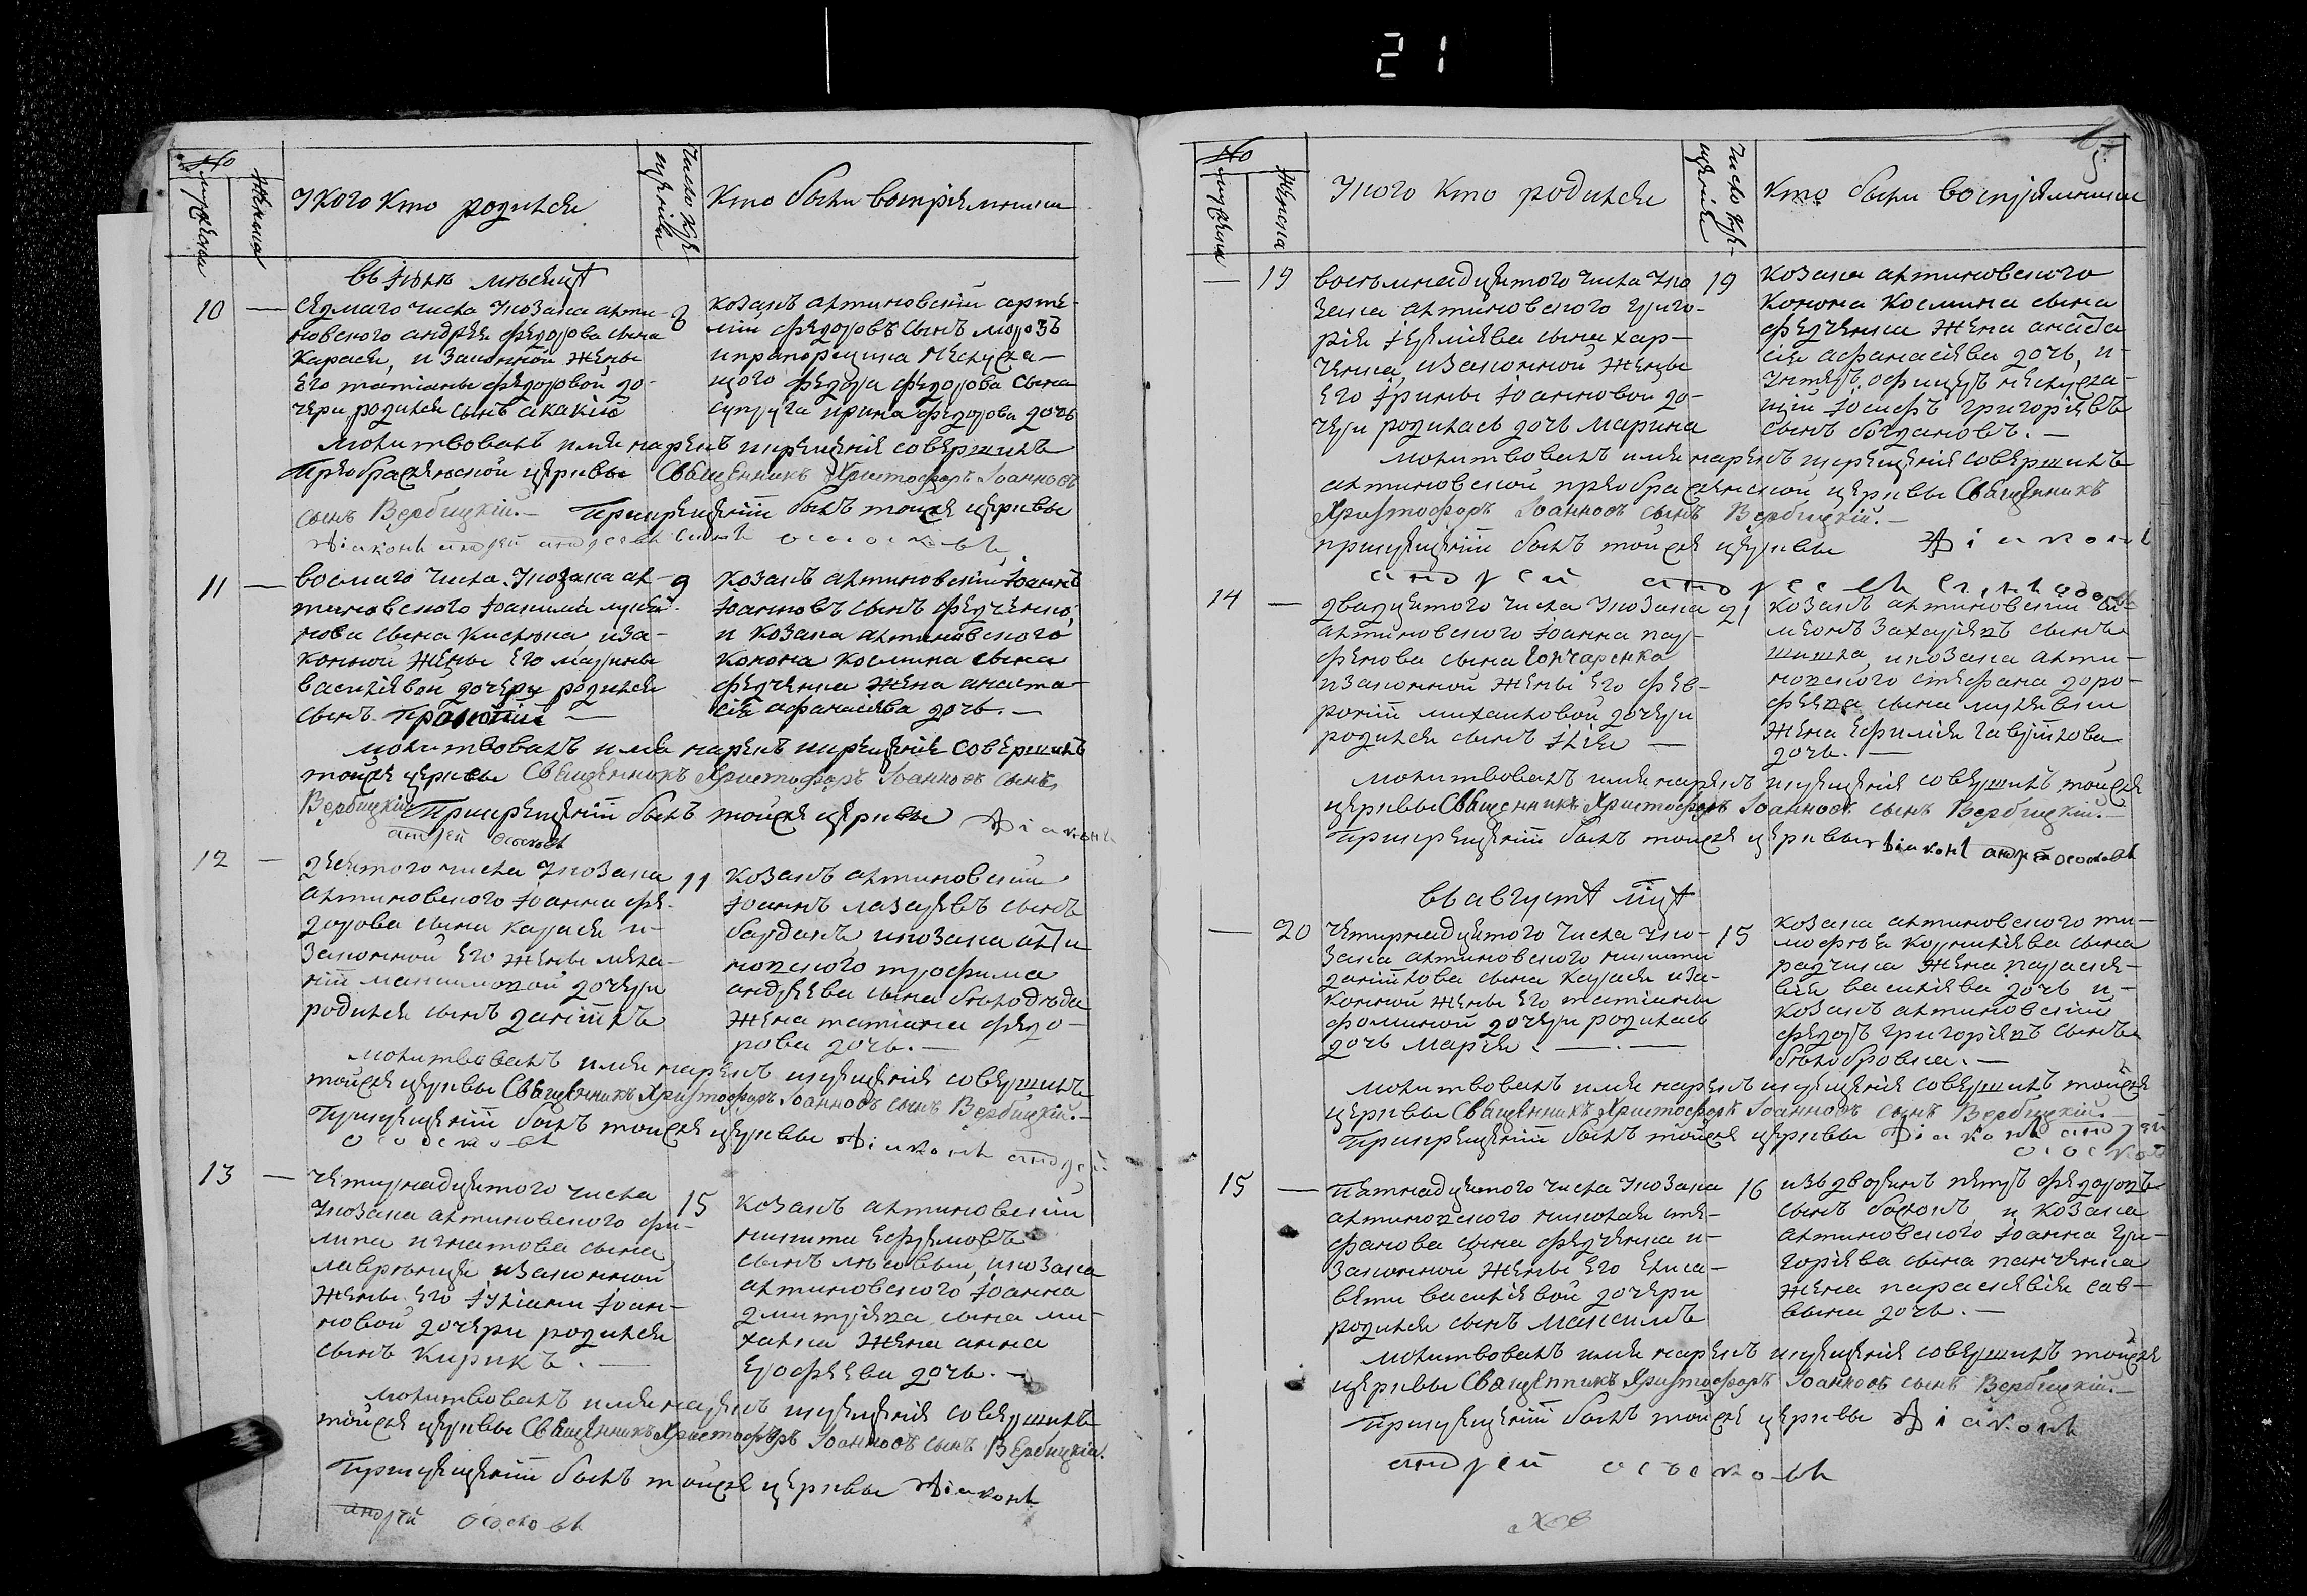 21
15
№
мужеска
женска
У кого кто родился
Число крещенія
Кто были воспріемники
въ іюлѣ мѣсяцѣ
10 —
седмаго числа укозака алти-
новского андрея федорова сына
карася, и законной жены
его татіаны федоровой до-
чери родился сынъ акакій
8
козакъ алтиновскій арте-
мій федоровъ сынъ морозъ
ипрапорщика
федора федорова сына
супруга ирина федорова дочь
молитвовалъ имя нарекъ икрещеніе совершилъ
Преображенской церкви Священникъ Христофоръ Іоанновъ
сынъ Вербицкій.— Прикрещеніи былъ тойже церкви
діаконъ андрей андреевъ сынъ
11 —
восмаго числа укозака ал-
тиновского Іоакима
нова сына кистюка иза-
конной жены его марины
василіевой дочери родился
сынъ —
9
козакъ алтиновскій Іоаннъ
Іоанновъ сынъ федченко,
и козака алтиновского
конона космина сына
федченка жена анаста-
сія афанасіева дочь.—
молитвовалъ имя нарекъ икрещеніе совершилъ
тойже церкви Священникъ Христофоръ Іоанновъ сынъ
Вербицкій Прикрещеніи былъ тойже церкви діаконъ
андрей
12 —
девятого числа укозака
алтиновского Іоанна фе-
дорова сына карася и-
законной его жены мела-
ніи максимовой дочери
родился сынъ даніилъ
11
козакъ алтиновскій
Іоаннъ лазаревъ сынъ
бардакъ, икозака алти-
новского трофима
андреева сына бѣлодѣда
жена татіана федо-
рова дочь.—
молитвовалъ имя нарекъ икрещеніе совершилъ
тойже церкви Священникъ Христофоръ Іоанновъ сынъ Вербицкій.—
Прикрещеніи былъ тойже церкви діаконъ андрей
13 —
четырнадцятого числа
укозака алтиновского фи-
липа игнатова сына
лавренця изаконной
жены его Іуліани Іоан-
новой дочери родился
сынъ Кирикъ.—
15
козакъ алтиновскій
никита ефремовъ
сынъ лѣсовый, икозака
алтиновского Іоанна
димитріева сына ми-
халка жена анна
ерофеева дочь.—
молитвовалъ имя нарекъ икрещеніе совершилъ
тойже церкви Священникъ Христофоръ Іоанновъ сынъ Вербицкій.
Прикрещеніи былъ тойже церкви діаконъ
андрей
№
мужеска
женска
У кого кто родился
Число крещенія
Кто были воспріемники
— 19
восемьнадцятого числа уко
зака алтиновского григо-
рія Іереміева сына хар-
ченка, изаконной жены
его Ірины Іоанновой до-
чери родилась дочь марина
19
козака алтиновского
Конона Космина сына
федченка жена анаста
сія афанасіева дочь, и-
Іосифъ григоріевъ
сынъ богдановъ.—
молитвовалъ имя нарекъ икрещеніе совершилъ
алтиновской преображенской церкви Священникъ
Христофоръ Іоанновъ сынъ Вербицкій.—
прикрещеніи былъ тойже церкви діаконъ
андрей андреевъ
14 —
двадцятого числа укозака
алтиновского Іоанна пар-
фенова сына Гончаренка
изаконной жены его фев-
роніи михаиловой дочери
родился сынъ Ілія —
21
козакъ алтиновскій си-
меонъ захаріевъ сынъ
шишка, икозака алти-
новского стефана доро-
феева сына
жена ефимія гавріилова
дочь.—
молитвовалъ имя нарекъ икрещеніе совершилъ тойже
церквы Священникъ Христофоръ Іоанновъ сынъ Вербицкій.—
Прикрещеніи былъ тойже церквы діаконъ андрей
въ августѣ мцѣ
— 20
четирнадцятого числа уко-
зака алтиновского никити
даніилова сына карася иза-
конной жены его татіаны
фоминой дочери родилась
дочь марія.—
15
козака алтиновского ти-
мофея корниліева сына
радчика жена параске-
вія василіева дочь и-
козакъ алтиновскій
федоръ григоріевъ сынъ
бѣлобровка.—
молитвовалъ имя нарекъ икрещеніе совершилъ тойже
церкви Священникъ Христофоръ Іоанновъ сынъ Вербицкій.—
Прикрещеніи былъ тойже церкви діаконъ андрей
15 —
Пятнадцятого числа укозака
алтиновского николая сте-
фанова сына федченка и-
законной жены его елиса-
вети василіевой дочери
родился сынъ максимъ
16
изъ дворянъ петръ федоровъ
сынъ и козака
алтиновского Іоанна гри-
горіева сына панченка
жена параскевія сав-
вына дочь.—
молитвовалъ имя нарекъ икрещеніе совершилъ тойже
церкви Священникъ Христофоръ Іоанновъ сынъ Вербицкій.—
Прикрещеніи былъ тойже церкви діаконъ
андрей